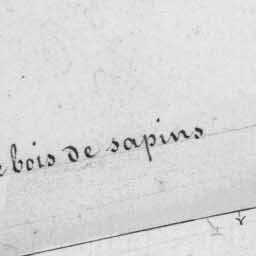 e bois de sapins